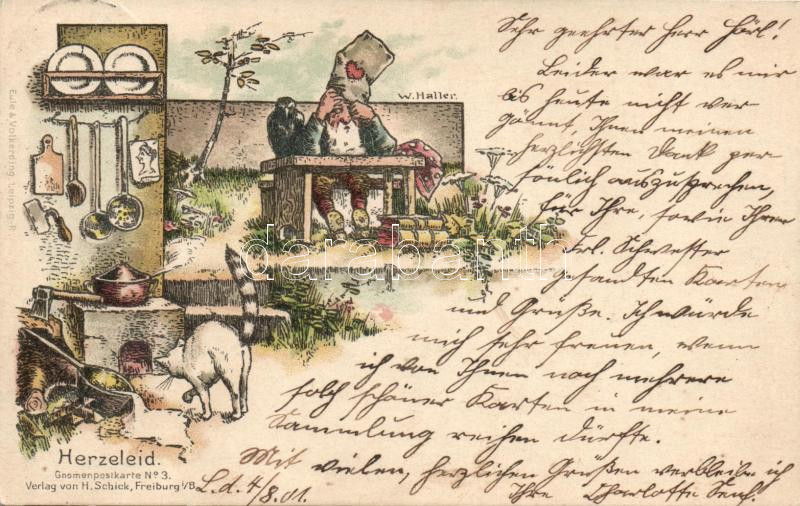 Sehr geehrter Herr Hörl!
Leider war es mir
bis heute nicht ver
gönnt, Ihnen meinen
herzlichsten Dank per
sönlich auszusprechen,
für Ihre, sowie Ihrer
Frl. Schwester
gesandten Karten
und Grüße. Ich würde
mich sehr freuen, wenn
ich von Ihnen noch mehrere
solch schöner Karten in meine
Sammlung reihen dürfte.
Mit vielen, herzlichen Grüßen verbleibe ich
L. d. 4/8.01. Ihre Charlotte
W. Haller.
Eule & Volkerding Leipzig-R.
darabanth
Herzeleid.
Gnomenpostkarte No 3.
Verlag von H. Schick, Freiburg i/B.